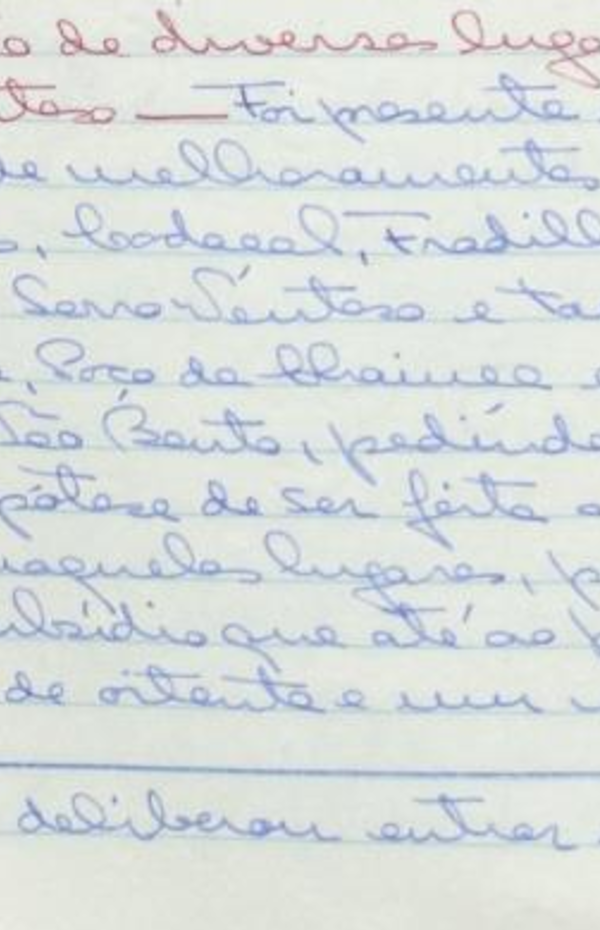 o de diversos luga
toso — Foi presente
de melhoramentos
s, Codaçal, Fradill
Serro Ventoso e ta
, Poço da Chainça e
São Bento, pedindo
pótese de ser feita a
naqueles lugares, p
ubsídio que até ao p
de oitenta e um
deliberou entrar